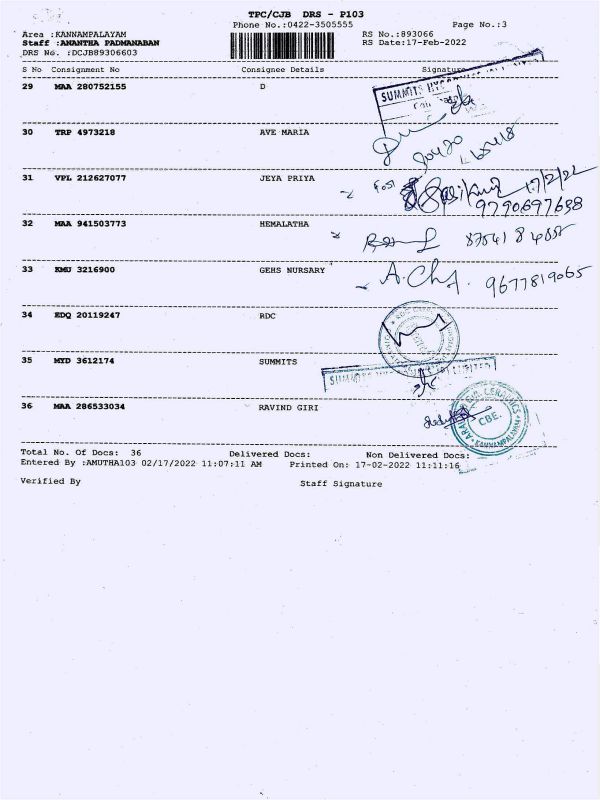 TPC/CJB DRS - P103
Phone No.:0422-3505555 Page No.:3
Area :KANNAMPALAYAM RS No.:893066
Staff :ANANTHA PADMANABAN RS Date:17-Feb-2022
DRS No. :DCJB89306603
S No Consignment No Consignee Details Signature
29 MAA 280752155 D
SUMMITS
30 TRP 4973218 AVE MARIA
31 VPL 212627077 JEYA PRIYA
17/2/22
9790697698
32 MAA 941503773 HEMALATHA
33 KMU 3216900 GEHS NURSARY
9677819065
34 EDQ 20119247 RDC
35 MYD 3612174 SUMMITS
LIMITED
36 MAA 286533034 RAVIND GIRI
CBE.
KANNAMPALAYAM
Total No. Of Docs: 36 Delivered Docs: Non Delivered Docs:
Entered By :AMUTHA103 02/17/2022 11:07:11 AM Printed On: 17-02-2022 11:11:16
Verified By Staff Signature